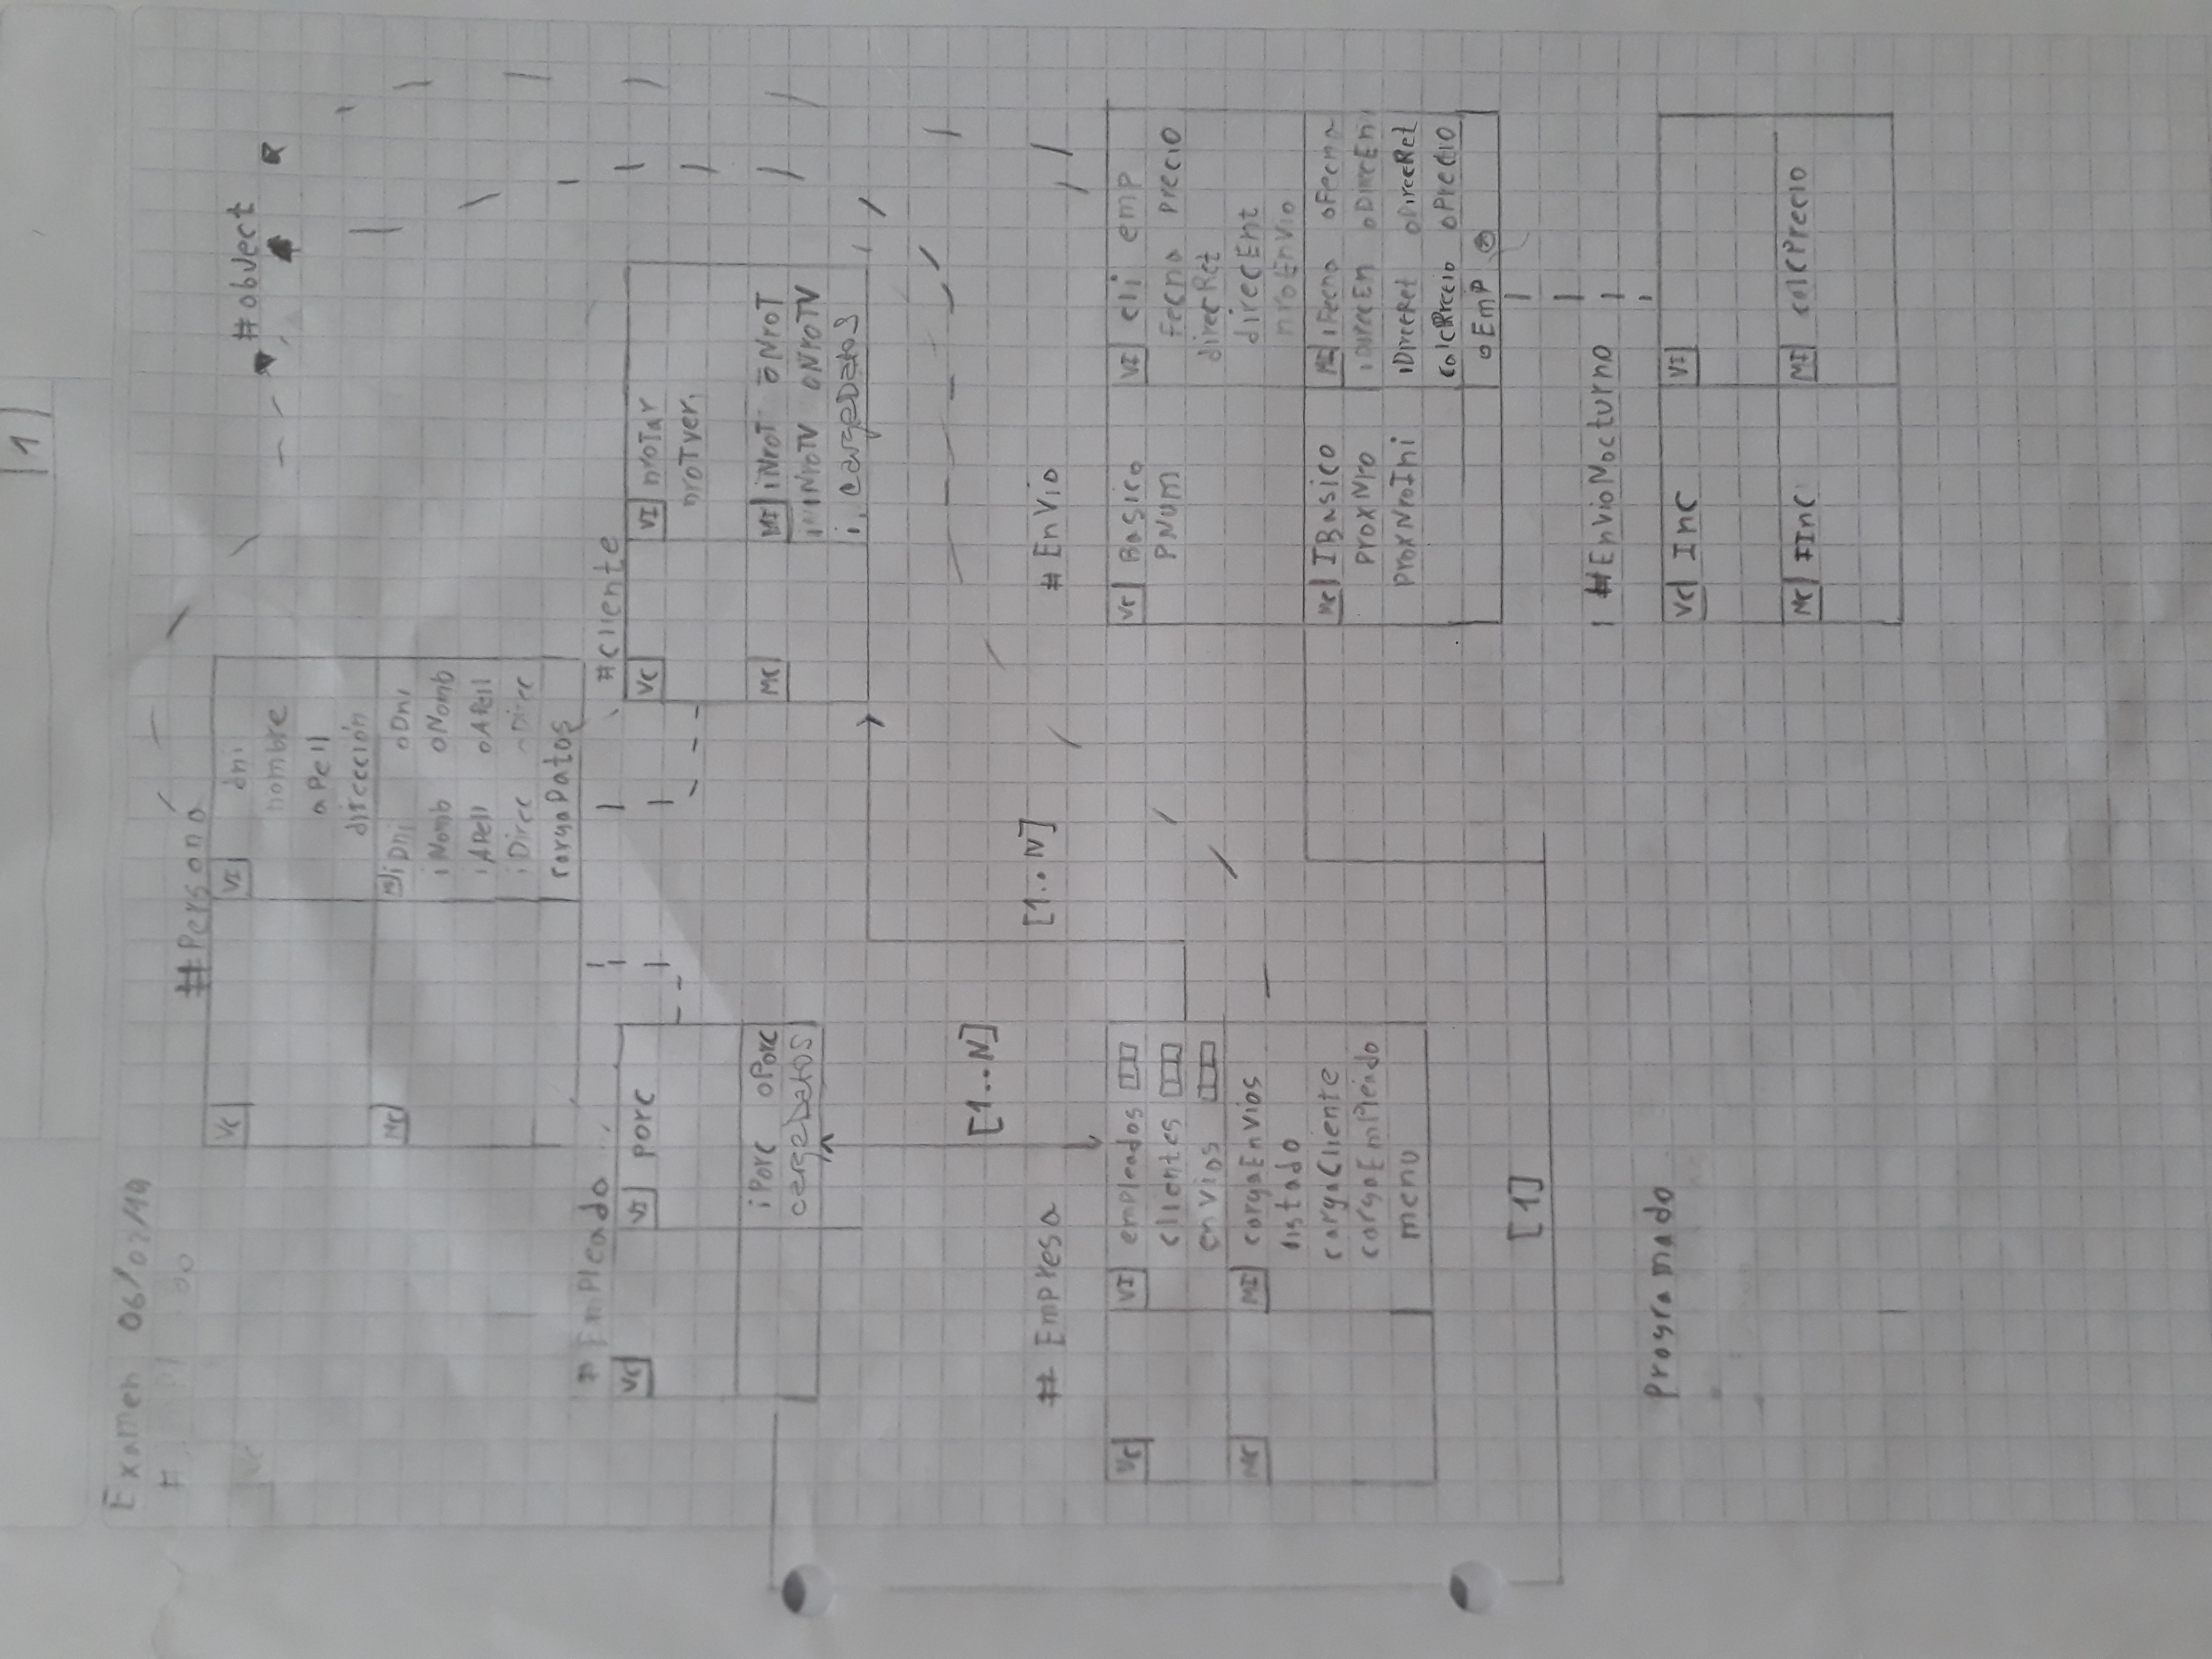 1
Examen 06/02/19
#Persona
VC VI dni
nombre
apell
dirección
MC MI iDni oDni
iNomb oNomb
iApell oApell
iDirec oDirec
cargaDatos
#object
#Empleado
VC VI porc
iPorc oPorc
cargaDatos
#Cliente
VC VI nroTar
nroTver.
MC MI iNroT oNroT
iNroTV oNroTV
i, cargaDatos
[1..N]
[1..N]
# Empresa
VC VI empleados
clientes
envios
MC MI cargaEnvios
listado
cargaCliente
cargaEmpleado
menu
# Envio
VC Basico VI cli emp
PNum Fecha precio
direcRet
direcEnt
nroEnvio
MC IBasico MI iFecha oFecha
proxNro iDirecEn oDirecEn
proxNroIni iDirecRet oDirecRet
calcPrecio oPrecio
oEmp
[1]
#EnvioNocturno
VC Inc VI
MC IInc MI calcPrecio
Programado